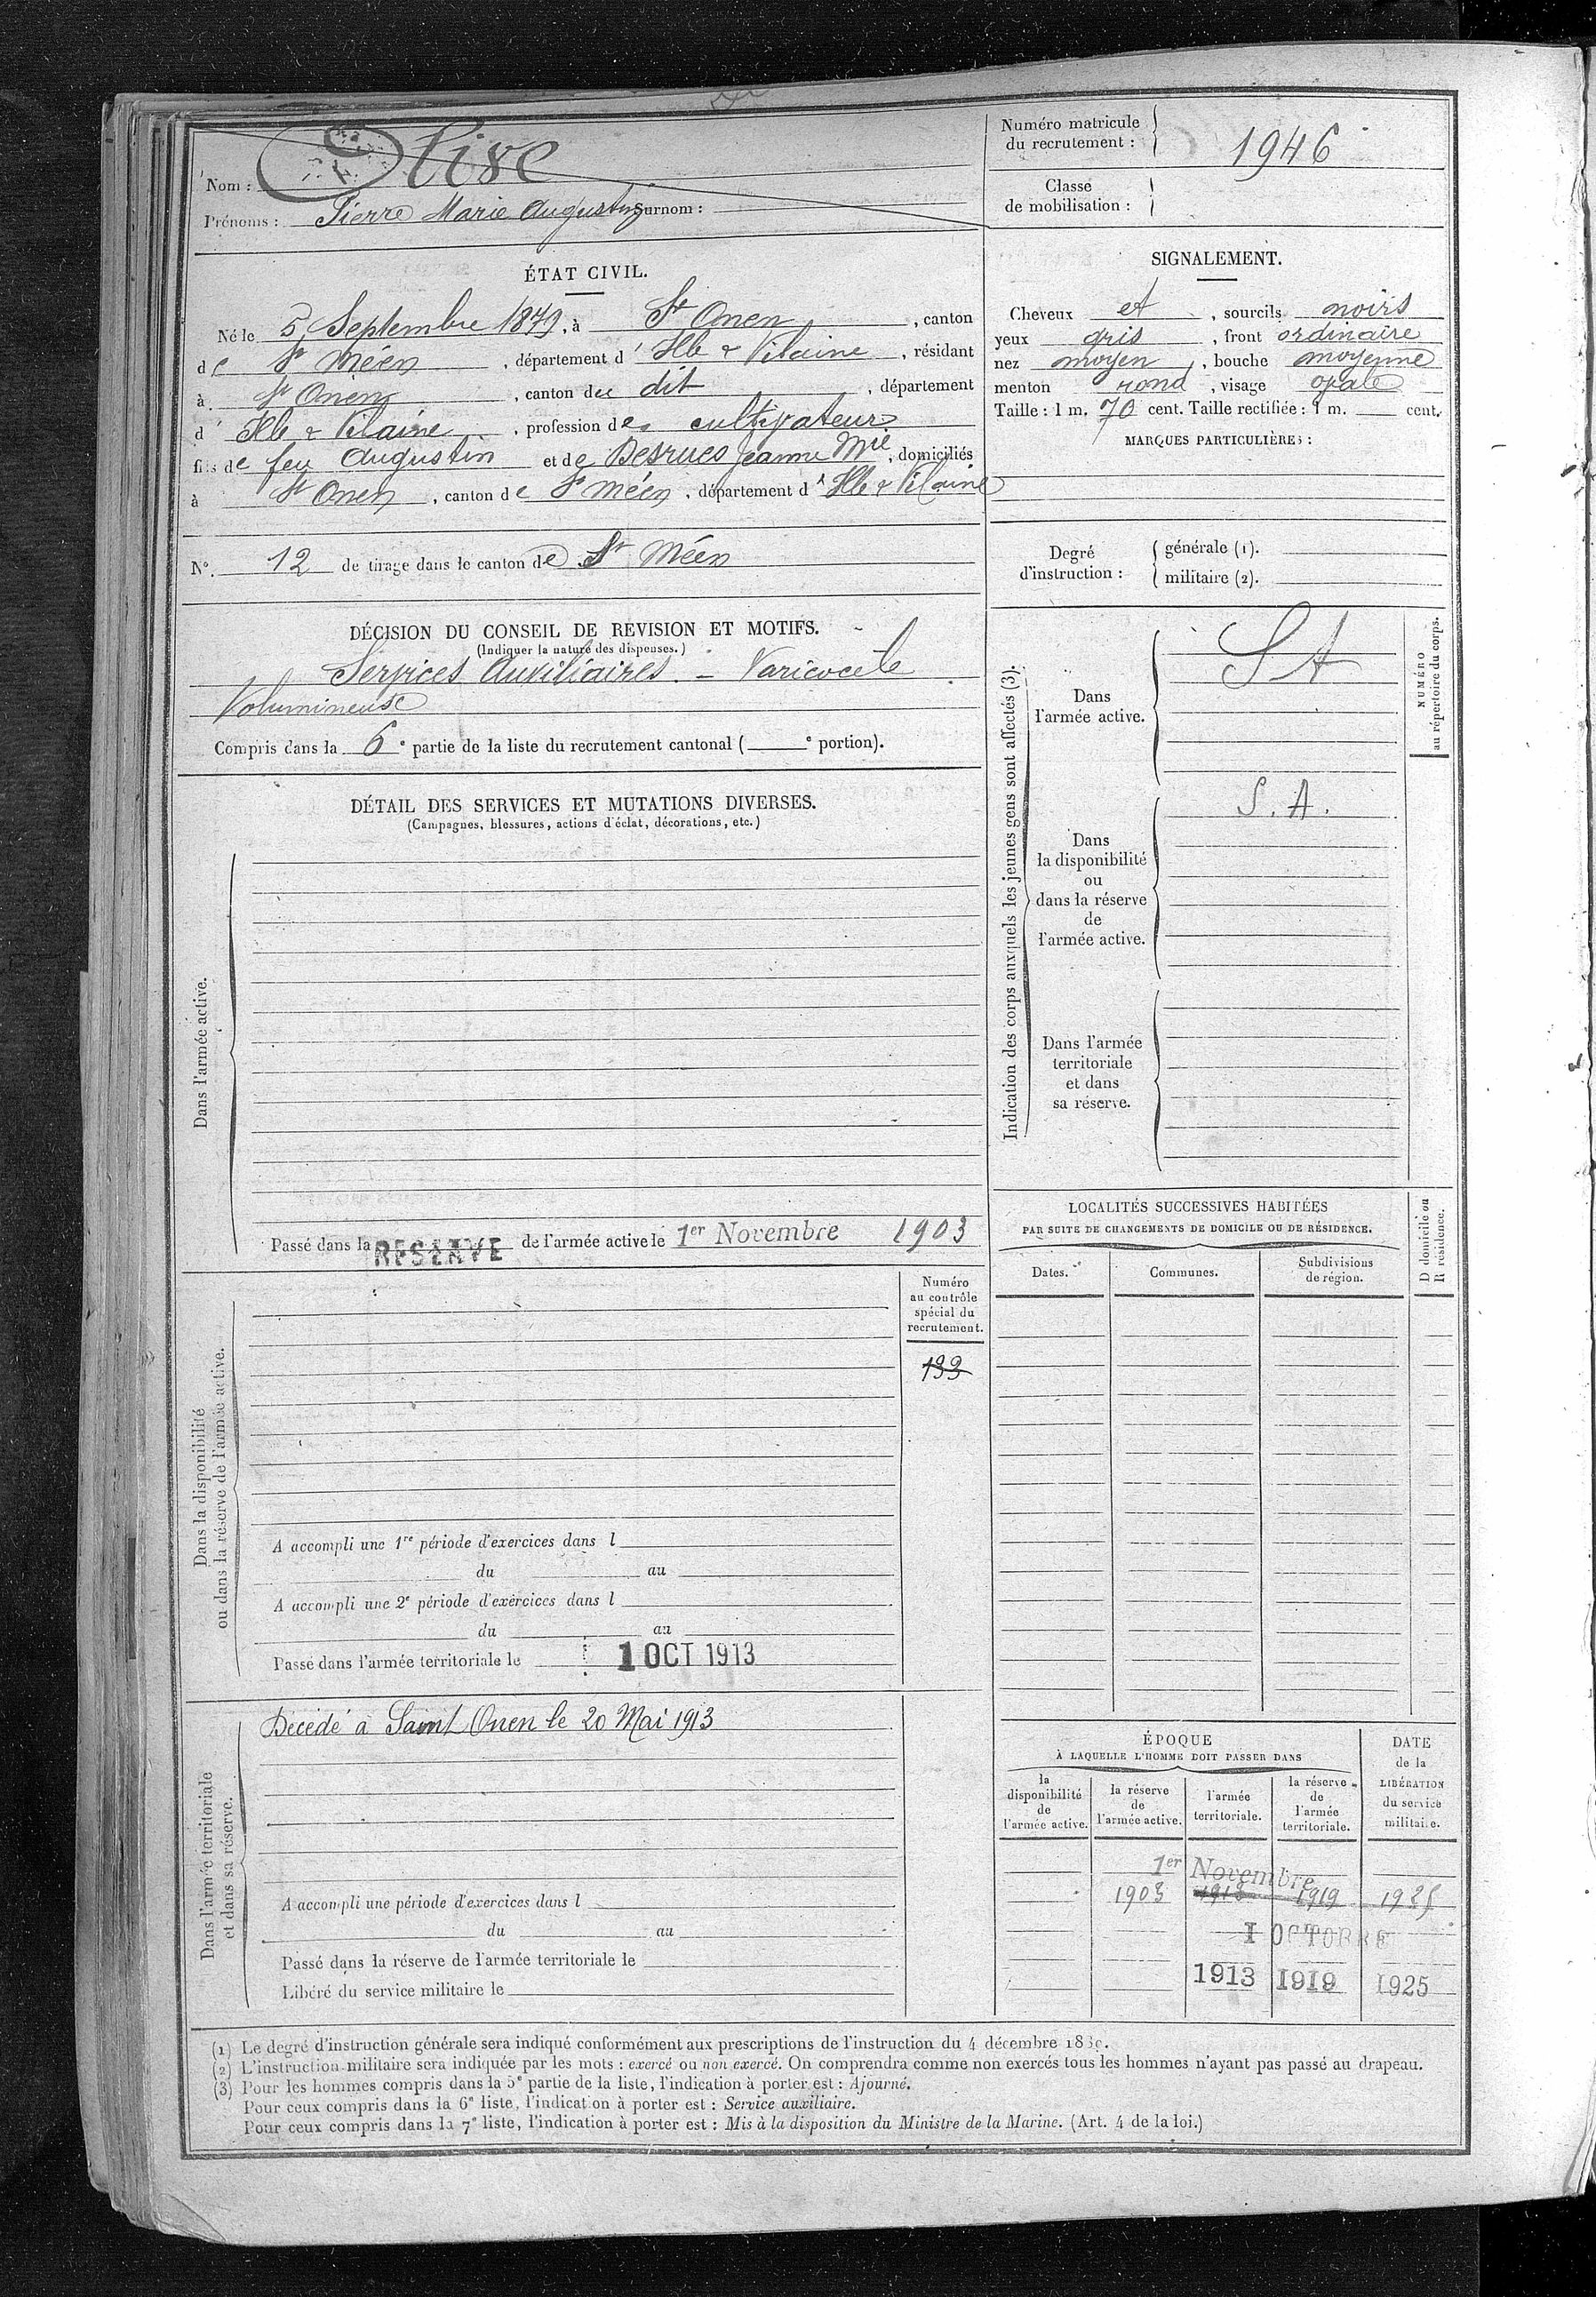 Nom : Olive
Prénoms : Pierre Marie Augustin Surnom :
Numéro matricule du recrutement : 1946
Classe de mobilisation :
ÉTAT CIVIL.
Né le 5 Septembre 1879, à St Onen, canton
de St Méen, département d'Ille & Vilaine, résidant
à St Onen, canton du dit, département
d'Ille & Vilaine, profession de cultivateur
fils de feu Augustin et de Desrues Jeanne Mie, domiciliés
à St Onen, canton de St Méen, département d'Ille & Vilaine
N° 12 de tirage dans le canton de St Méen
SIGNALEMENT.
Cheveux et, sourcils noirs
yeux gris, front ordinaire
nez moyen, bouche moyenne
menton rond, visage ovale
Taille : 1 m. 70 cent. Taille rectifiée : 1 m. cent.
MARQUES PARTICULIÈRES :
Degré d'instruction :
générale (1).
militaire (2).
DÉCISION DU CONSEIL DE REVISION ET MOTIFS.
(Indiquer la nature des dispenses.)
Services Auxiliaires. – Varicocèle
Volumineuse
Compris dans la 6e partie de la liste du recrutement cantonal ( e portion).
Indication des corps auxquels les jeunes gens sont affectés (3).
NUMÉRO
au répertoire du corps.
Dans
l'armée active.
SA
Dans
la disponibilité
ou
dans la réserve
de
l'armée active.
S.A.
Dans l'armée
territoriale
et dans
sa réserve.
DÉTAIL DES SERVICES ET MUTATIONS DIVERSES.
(Campagnes, blessures, actions d'éclat, décorations, etc.)
Dans l'armée active.
Passé dans la RESERVE de l'armée active le 1er Novembre 1903
Dans la disponibilité
ou dans la réserve de l'armée active.
Numéro
au contrôle
spécial du
recrutement.
133
A accompli une 1re période d'exercices dans l
du au
A accompli une 2e période d'exercices dans l
du au
Passé dans l'armée territoriale le 1 OCT 1913
LOCALITÉS SUCCESSIVES HABITÉES
PAR SUITE DE CHANGEMENTS DE DOMICILE OU DE RÉSIDENCE.
D domicile ou
R résidence.
Dates.
Communes.
Subdivisions
de région.
Dans l'armée territoriale
et dans sa réserve.
Décédé à Saint Onen le 20 Mai 1913
A accompli une période d'exercices dans l
du au
Passé dans la réserve de l'armée territoriale le
Libéré du service militaire le
ÉPOQUE
À LAQUELLE L'HOMME DOIT PASSER DANS
DATE
de la
LIBÉRATION
du service
militaire.
la
disponibilité
de
l'armée active.
la réserve
de
l'armée active.
l'armée
territoriale.
la réserve
de
l'armée
territoriale.
1er Novembre
1903 1913 1919 1925
1 OCTOBRE
1913 1919 1925
(1) Le degré d'instruction générale sera indiqué conformément aux prescriptions de l'instruction du 4 décembre
(2) L'instruction militaire sera indiquée par les mots : exercé ou non exercé. On comprendra comme non exercés tous les hommes n'ayant pas passé au drapeau.
(3) Pour les hommes compris dans la 5e partie de la liste, l'indication à porter est : Ajourné.
Pour ceux compris dans la 6e liste, l'indication à porter est : Service auxiliaire.
Pour ceux compris dans la 7e liste, l'indication à porter est : Mis à la disposition du Ministre de la Marine. (Art. 4 de la loi.)